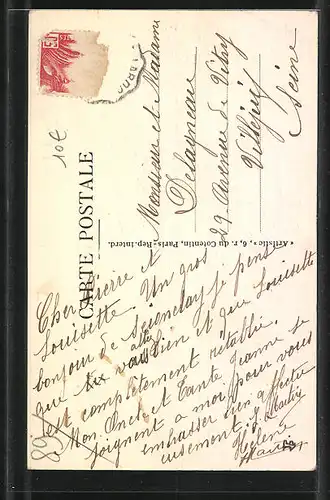 CARTE POSTALE
10€
Monsieur et Madame
Delagneau
29 Avenue de Vitry
Villejuif
Seine
« Artistic », 6, r. du Cotentin, Paris.-Rep. Interd.
Cher Pierre et
Louisette. Un gros
bonjour de Seignelay je pense
que tu vas bien et que Louisette
est complètement rétablie.
Mon Oncle et Tante Jeanne se
joignent a moi pour vous
embrasser bien affectu
eusement.
Hélène
89